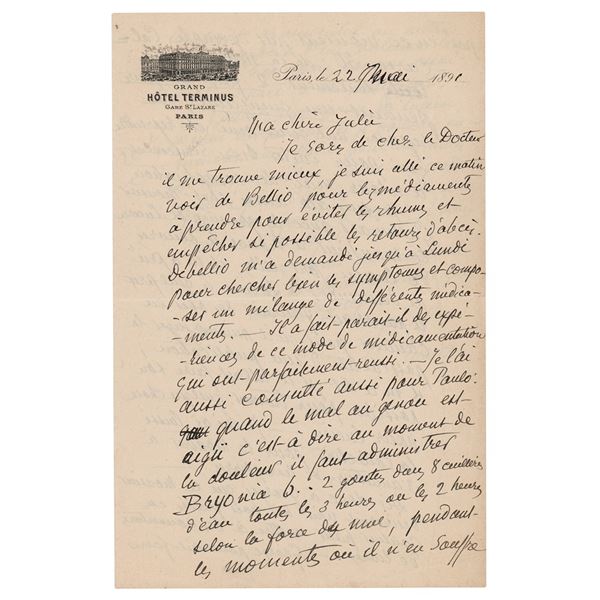 GRAND
HÔTEL TERMINUS
GARE ST LAZARE
PARIS
Paris, le 22 Mai 1891
Ma chère Julie
Je sors de chez le Docteur
il me trouve mieux, je suis allé ce matin
voir de Bellio pour les médicaments
à prendre pour éviter les rhumes et
empêcher si possible les retours d'abcès.
Debellio m'a demandé jusqu'à Lundi
pour chercher bien les symptomes et compo-
ser un mélange de différents médica-
-ments. — Il a fait parait-il des expé-
-riences de ce mode de médicamentation
qui ont parfaitement reussi. — Je l'ai
aussi consulté aussi pour Paulo:
quand le mal au genou est
aigü c'est à dire au moment de
la douleur il faut administrer
Bryonia 6.. 2 gouttes dans 8 cuillères
d'eau toutes les 3 heures ou les 2 heures
selon la force du mal, pendant
les moments où il n'en souffre